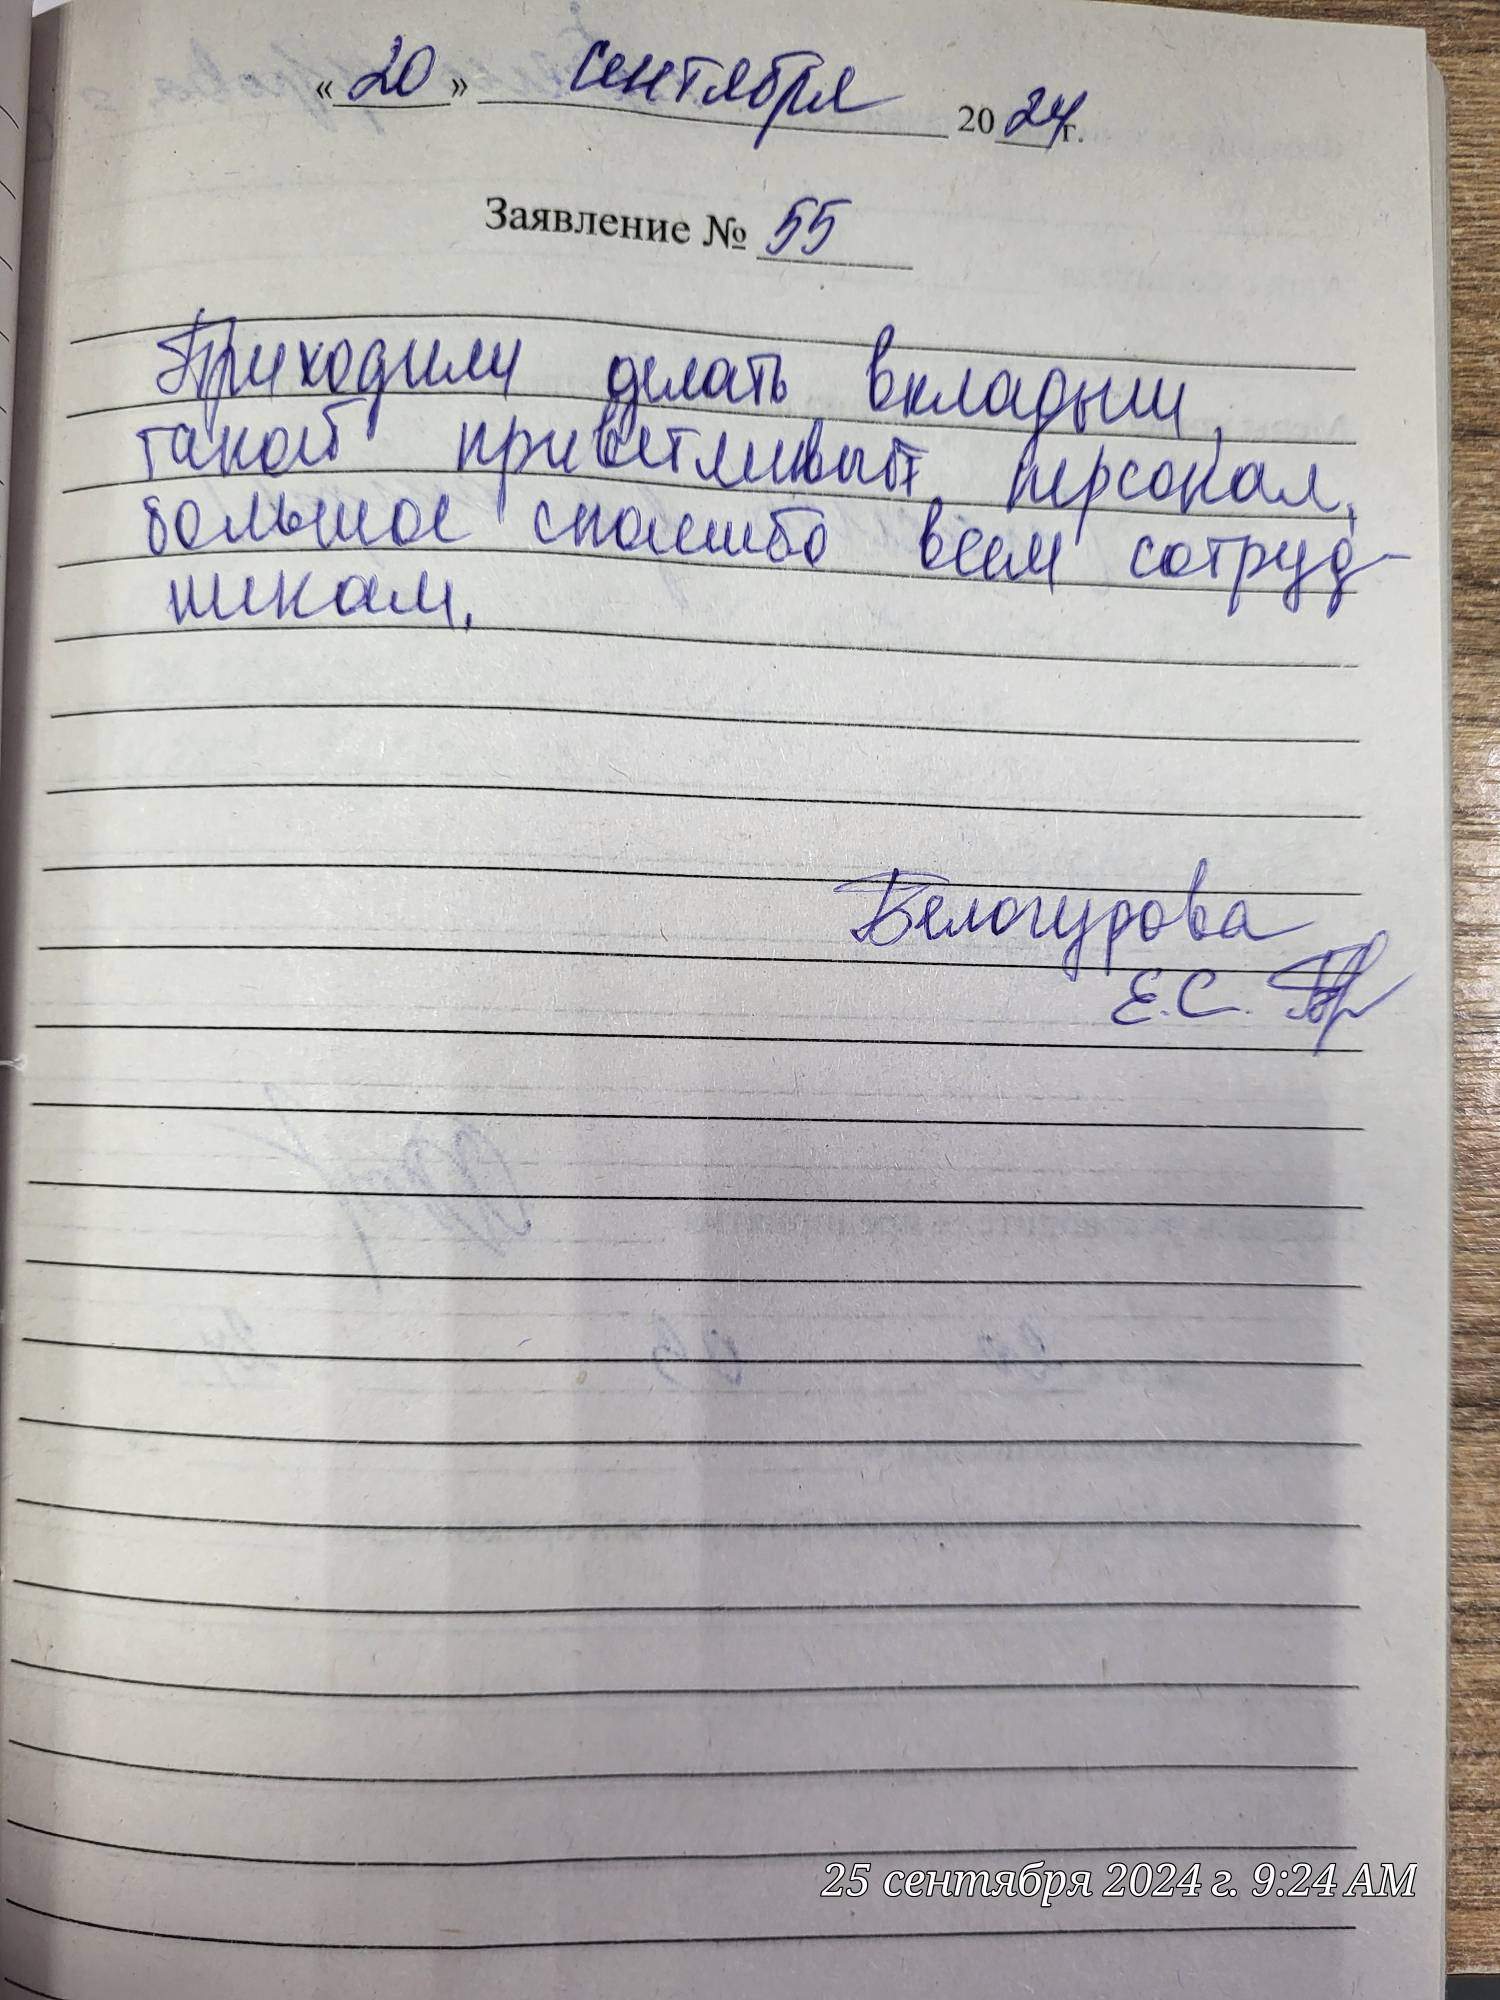 «20» сентября 2024г.
Заявление № 55
Приходили делать вкладыш,
такой приветливый персонал,
большое спасибо всем сотруд-
никам.
Белогурова
Е.С.
25 сентября 2024 г. 9:24 AM